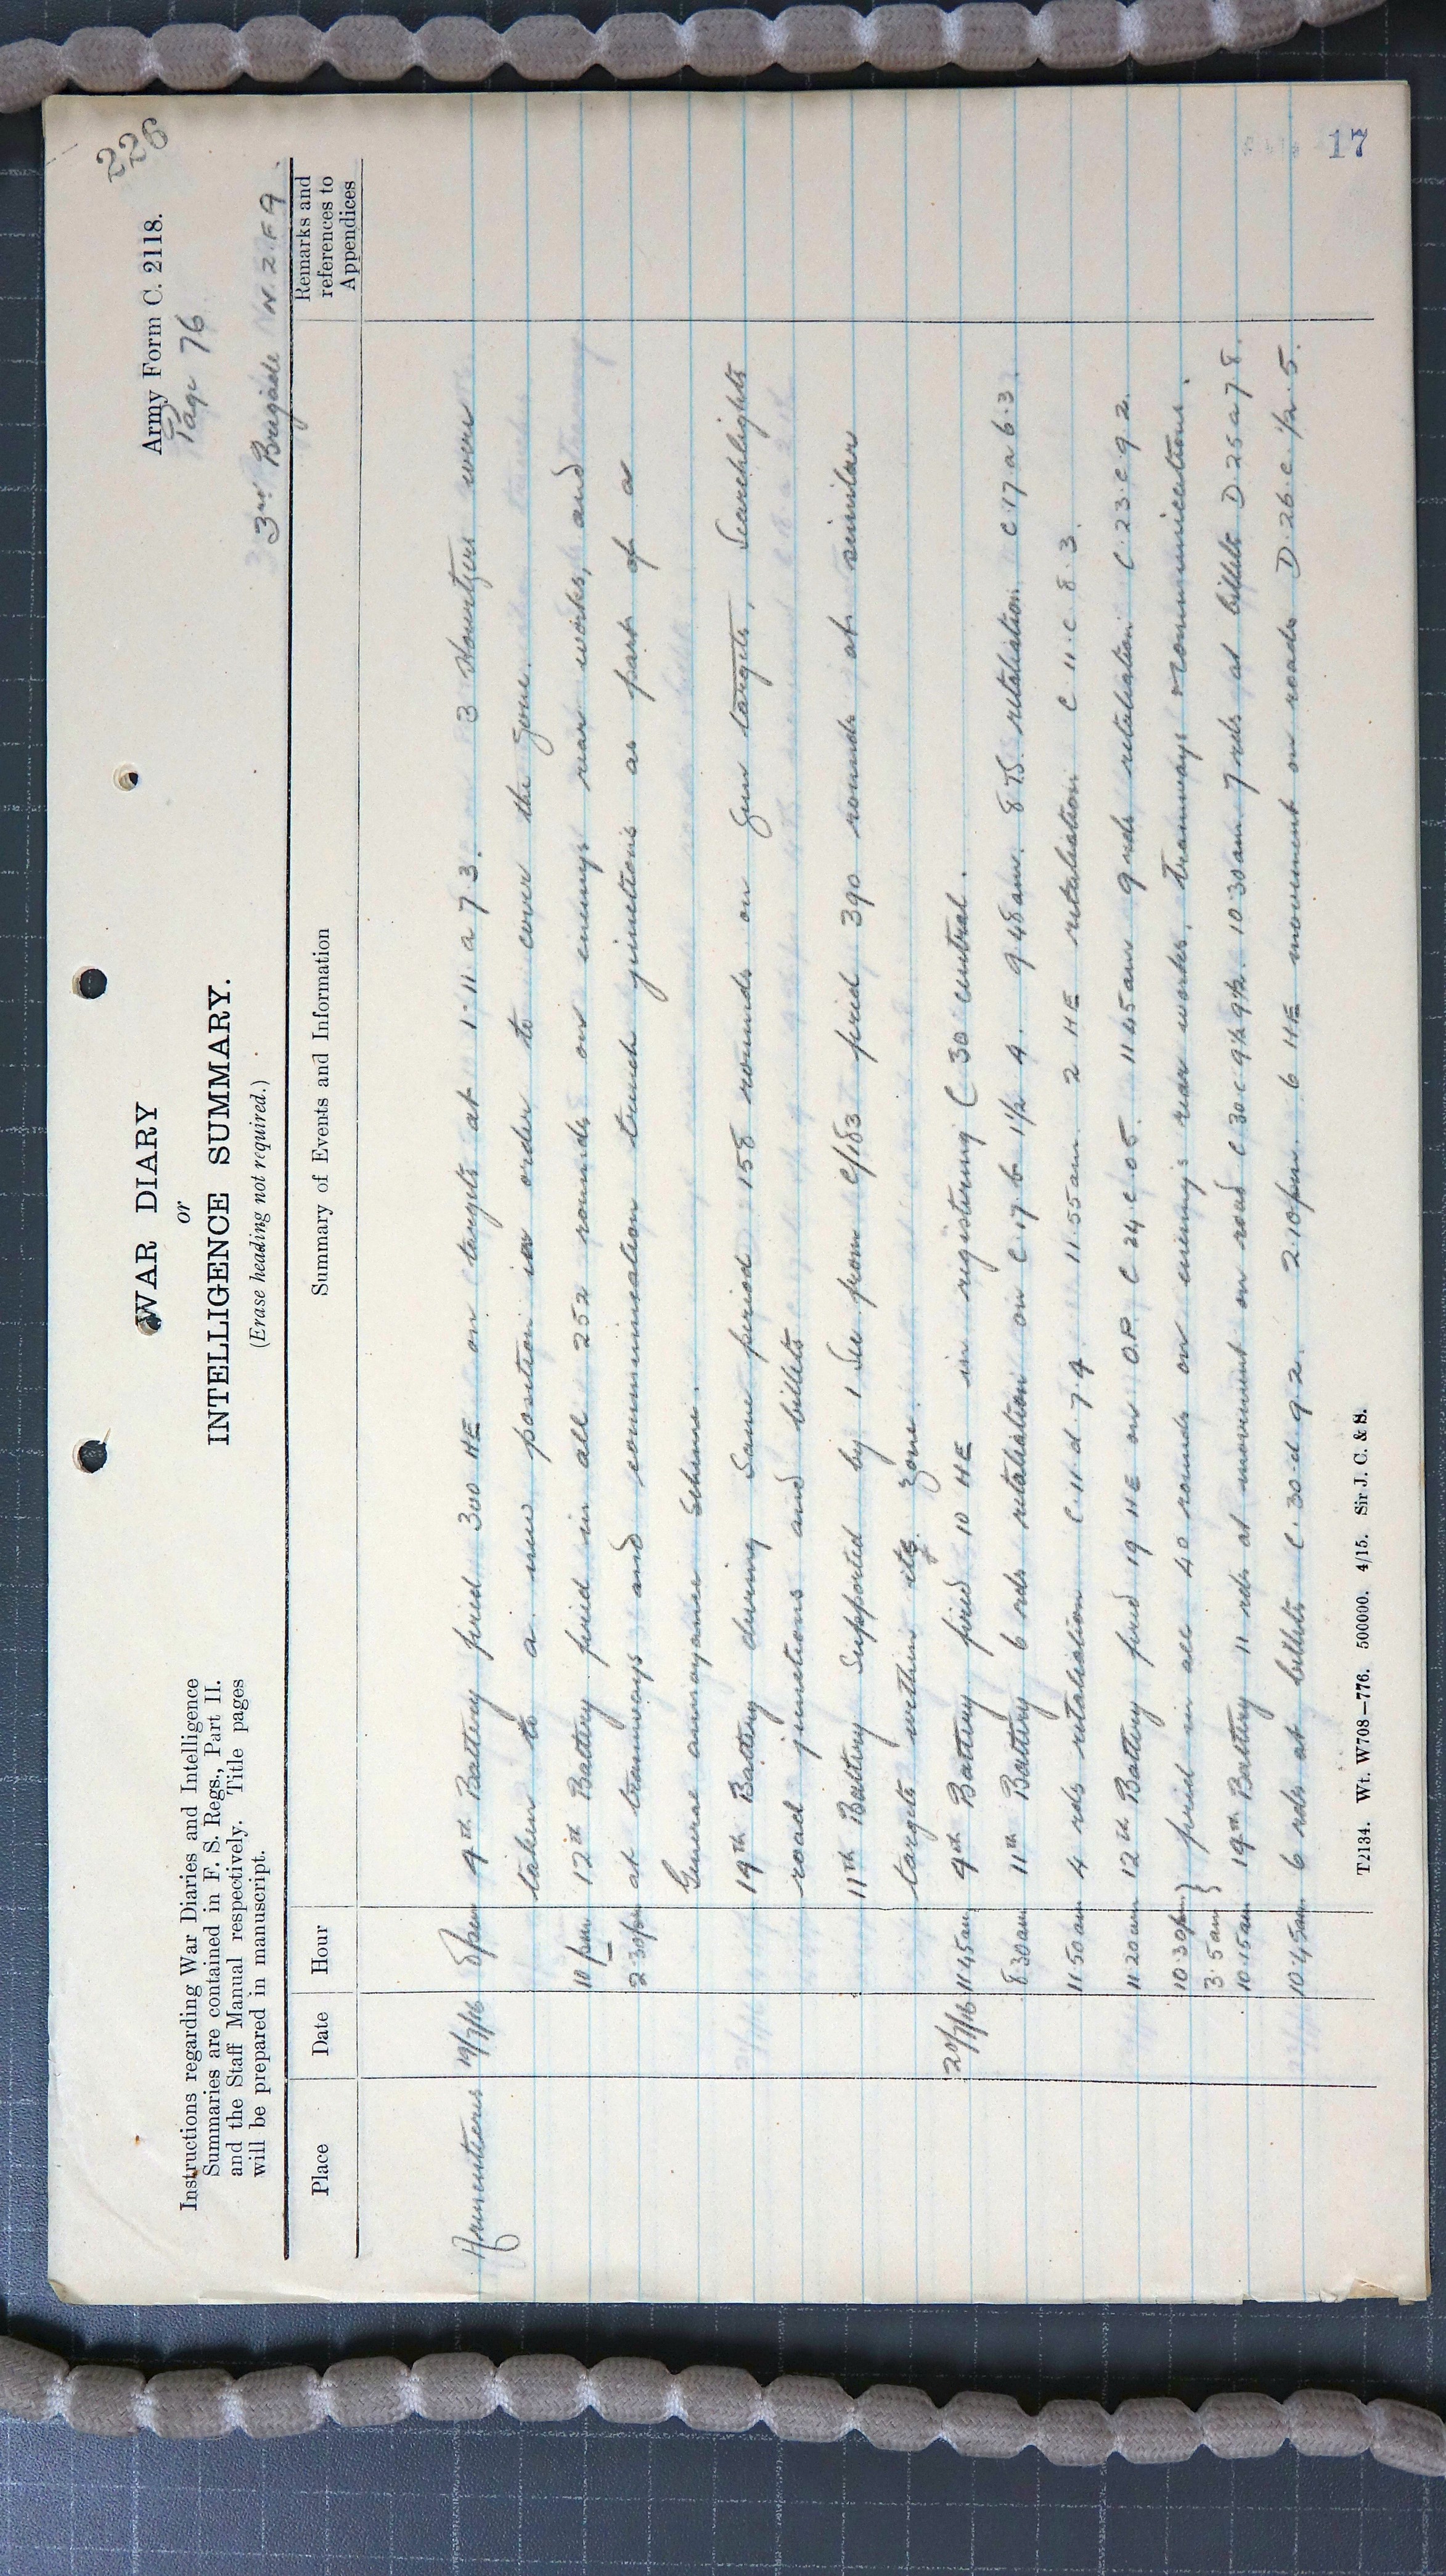 226
Army Form C. 2118.
Page 76
WAR DIARY
or
INTELLIGENCE SUMMARY.
(Erase heading not required.)
3rd Brigade N.Z.F.A.
Instructions regarding War Diaries and Intelligence
Summaries are contained in F. S. Regs., Part II.
and the Staff Manual respectively. Title pages
will be prepared in manuscript.
Place Date Hour Summary of Events and Information Remarks and references to Appendices
Armentieres 19/7/16 8pm 4th Battery fired 300 HE on targets at 1-11 a 73. 3 Howitzers were
taken to a new position in order to cover the zone.
10 pm 12th Battery fired in all 252 rounds on enemys rear works, and
2.30pm at tramways and communication trench junctions as part of a
General annoyance scheme.
19th Battery during same period 158 rounds on gun targets, Searchlights
road junctions and billets
11th Battery supported by 1 Sec from C/183 fired 390 rounds at similar
targets within its zone.
20/7/16 11.45am 4th Battery fired 10 HE in registering C 30 central.
8.30am 11th Battery 6 rds retaliation on C.17.b 1½ 4. 9.48am. 8 TS. retaliation C.17 a 6.3.
11.50am 4 rds retaliation C.11.d.7.4 11.55am. 2 HE retaliation C 11.C.8.3.
11.20am 12th Battery fired 19 HE on O.P. C 24 c.05. 11.45am 9 rds retaliation C.23.c.9 2.
10.30pm } fired in all 40 rounds on enemy's rear works, tramways & communications.
3.5am }
10.15am 19th Battery 11 rds at movement on road C 30 c. 9½ 9½. 10.30am 7 rds at billets D.25 a 7 8.
10.45am 6 rds at billets C.30.d 9 2. 2.10pm. 6 HE movement on roads D.26.c.½.5.
T2134. Wt. W708—776. 500000. 4/15. Sir J. C. & S.
17